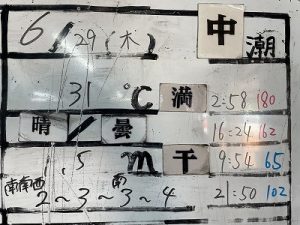 6/29(木) 中潮
31℃ 満 2:58 180
晴/曇 16:24 162
1.5m 干 9:54 65
南南西 南 21:50 102
2~3~3~4